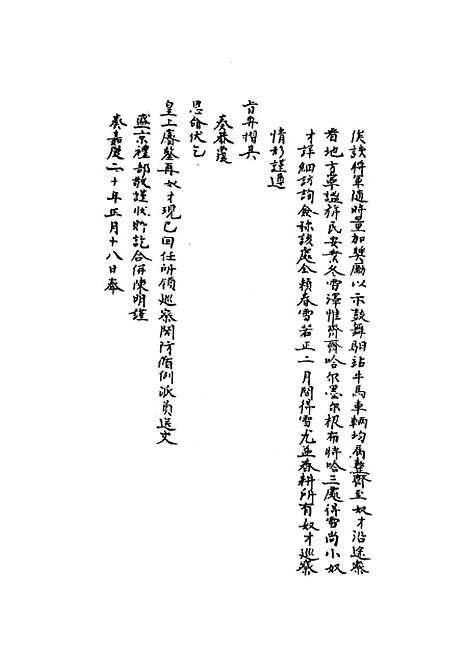 俟該將軍隨時量加獎勵以示鼓舞驛站牛馬車輛均屬整齊至奴才沿途察
看地方寧謐旗民安業冬雪澤惟齊齊哈尔墨尔根布特哈三處得雪尚小奴
才詳細訪詢僉称該處全賴春雪若正二月間得雪尤益春耕所有奴才巡察
情形謹遵
旨弁摺具
奏恭覆
恩飭伏乞
皇上睿鑒再奴才現已回任所領巡察関防循例派員送交
盛京禮部敬謹收貯訖合併陳明謹
奏嘉慶二十年正月十八日奉